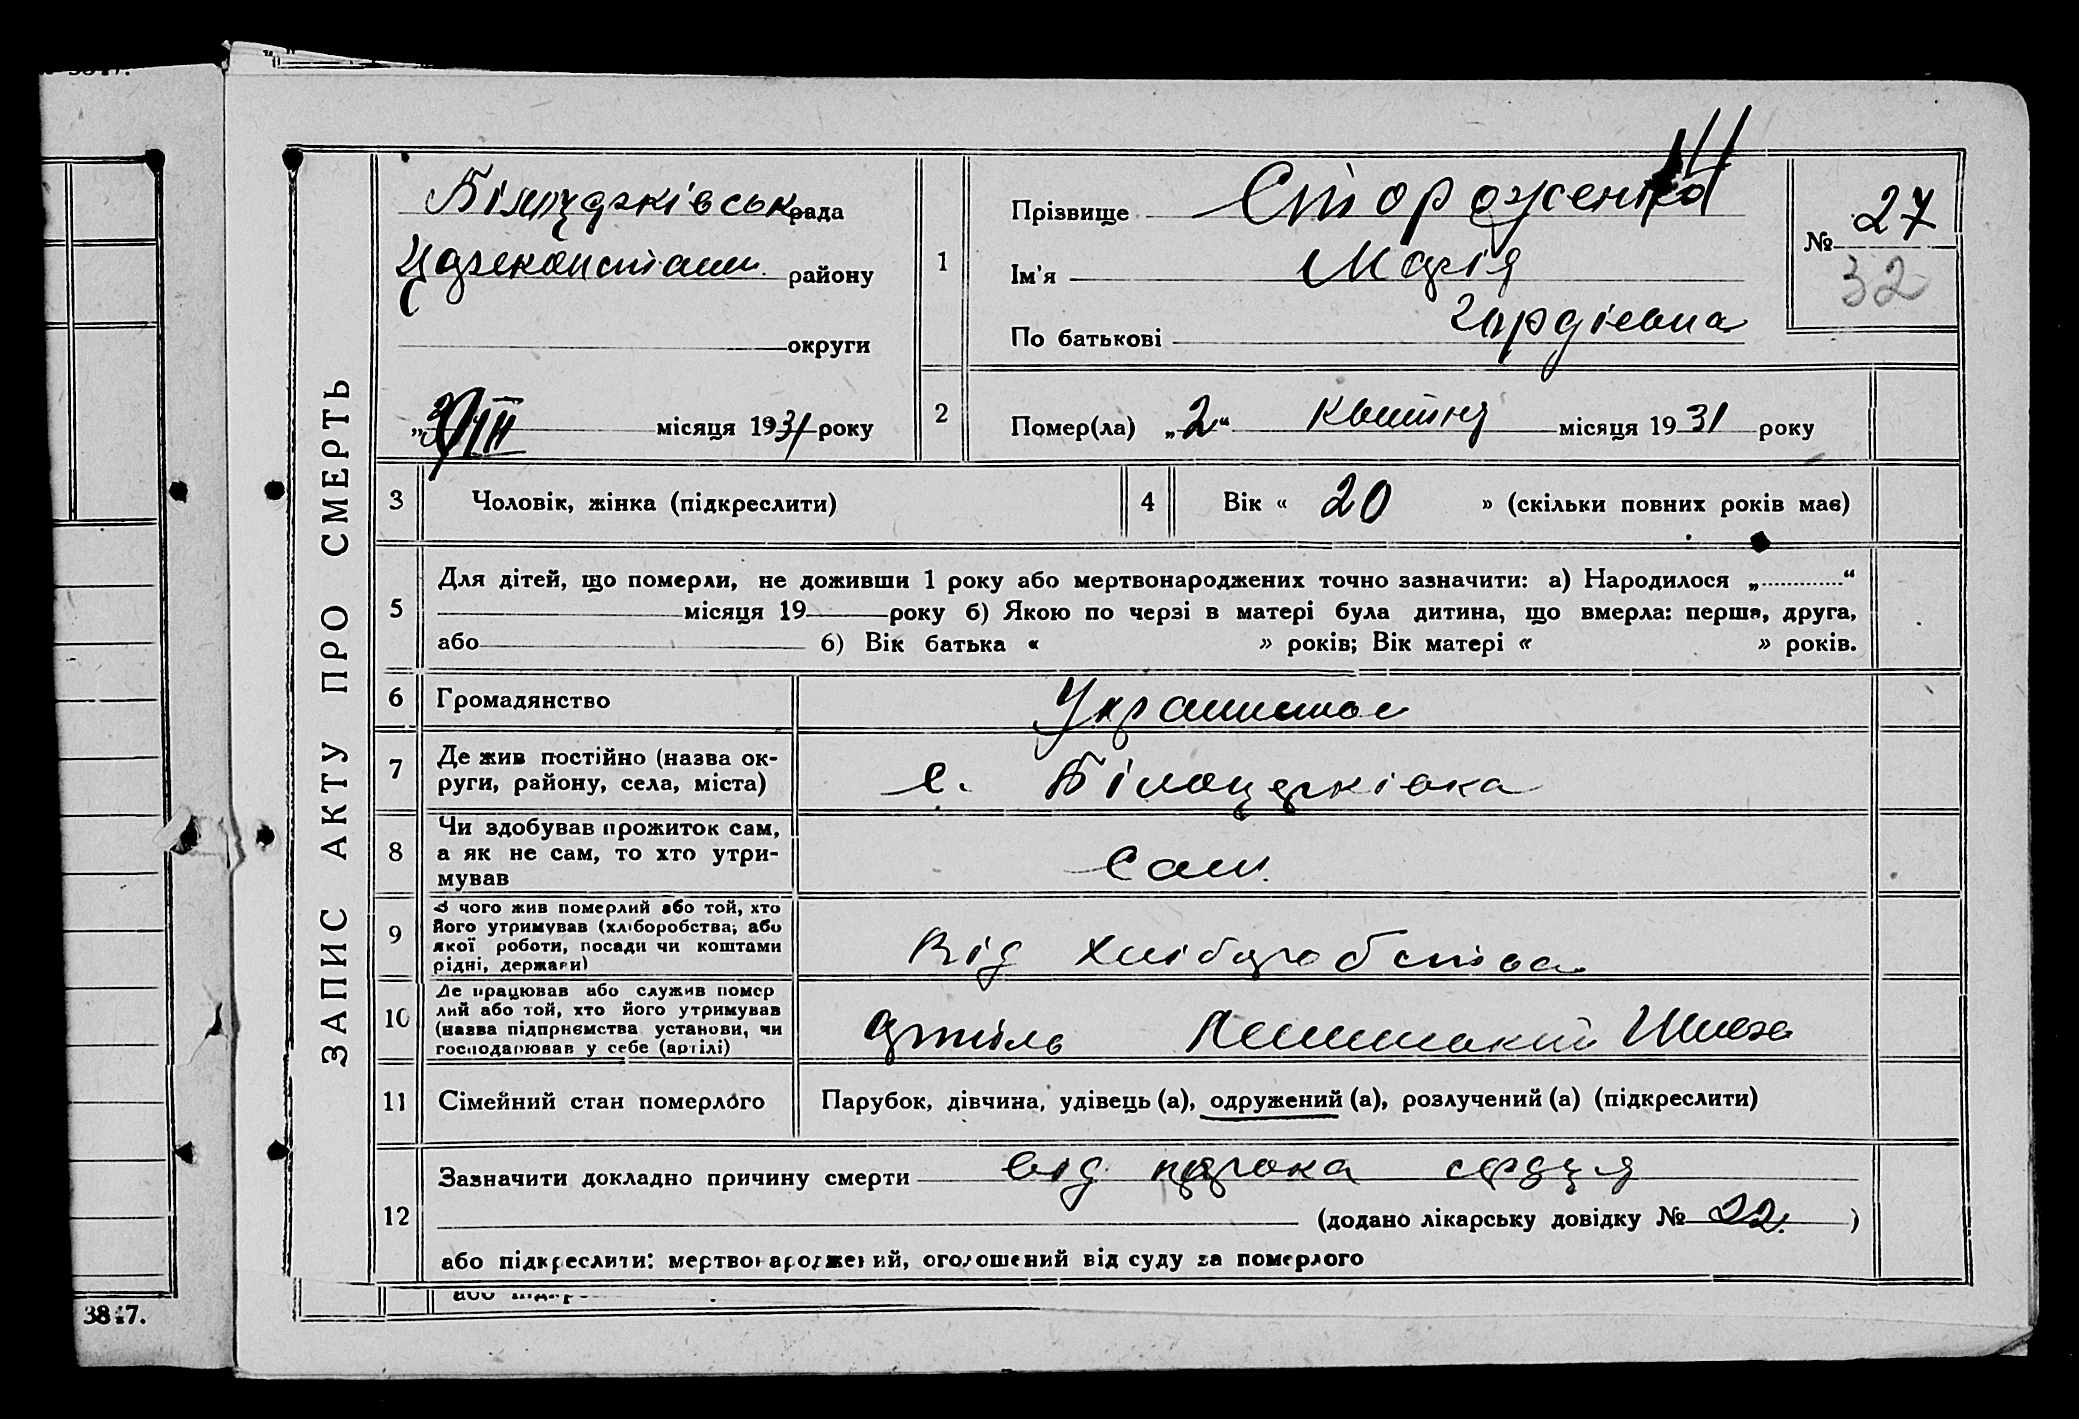 ЗАПИС АКТУ ПРО СМЕРТЬ
Білоцерківськ рада
Цареконстант. району
округи
місяця 1931 року
1
Прізвище Стороженко
Ім'я Марія
По батькові Гордієвна
№ 27
32
2
Помер(ла) „2“ Квітня місяця 1931 року
3
Чоловік, жінка (підкреслити)
4
Вік « 20 » (скільки повних років має)
5
Для дітей, що померли, не доживши 1 року або мертвонароджених точно зазначити: а) Народилося „ “
місяця 19 року б) Якою по черзі в матері була дитина, що вмерла: перша, друга,
або б) Вік батька « » років; Вік матері « » років.
6
Громадянство
7
Де жив постійно (назва ок-
руги, району, села, міста)
с. Білоцерківка
8
Чи здобував прожиток сам,
а як не сам, то хто утри-
мував
Сам.
9
З чого жив померлий або той, хто
його утримував (хліборобства, або
якої роботи, посади чи коштами
рідні, держави)
Від хліборобства
10
Де працював або служив помер
лий або той, хто його утримував
(назва підприємства установи, чи
господарював у себе (артілі)
Артіль Ленинский Шлях
11
Сімейний стан померлого
Парубок, дівчина, удівець (а), одружений (а), розлучений (а) (підкреслити)
12
Зазначити докладно причину смерти від порока сердця
(додано лікарську довідку № 22. )
або підкреслити: мертвонароджений, оголошений від суду за померлого
3847.